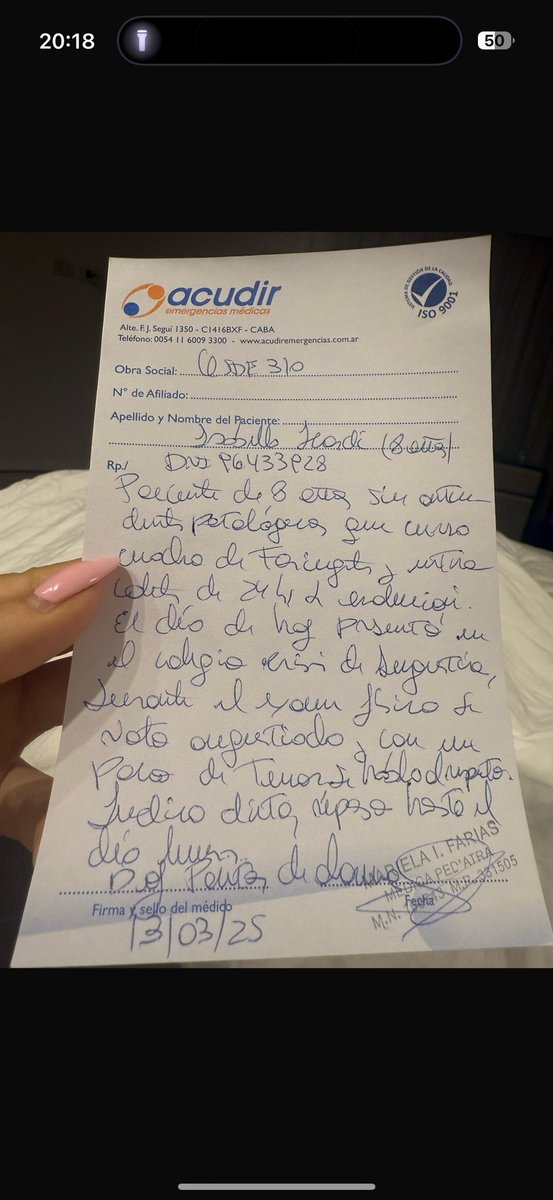 20:18
50
acudir
emergencias médicas
SISTEMA DE GESTIÓN DE LA CALIDAD
ISO 9001
Alte. F. J. Seguí 1350 - C1416BXF - CABA
Teléfono: 0054 11 6009 3300 - www.acudiremergencias.com.ar
Obra Social: OSDE 310
N° de Afiliado:
Apellido y Nombre del Paciente:
(8 años)
Rp./ DNI 96433928
Paciente de 8 años sin antece
dentes patológicos que cursa
cuadro de Faringitis y
de 24 hs de evolución.
El día de hoy presentó en
el colegio crisis de angustia,
durante el examen físico se
nota angustiada y con un
poco de Temor
Indico dieta, reposo hasta el
día lunes
Firma y sello del médico
Fecha
13/03/25
ELA I. FARIAS
MEDICA PEDIATRA
M.N. M.P. 331505